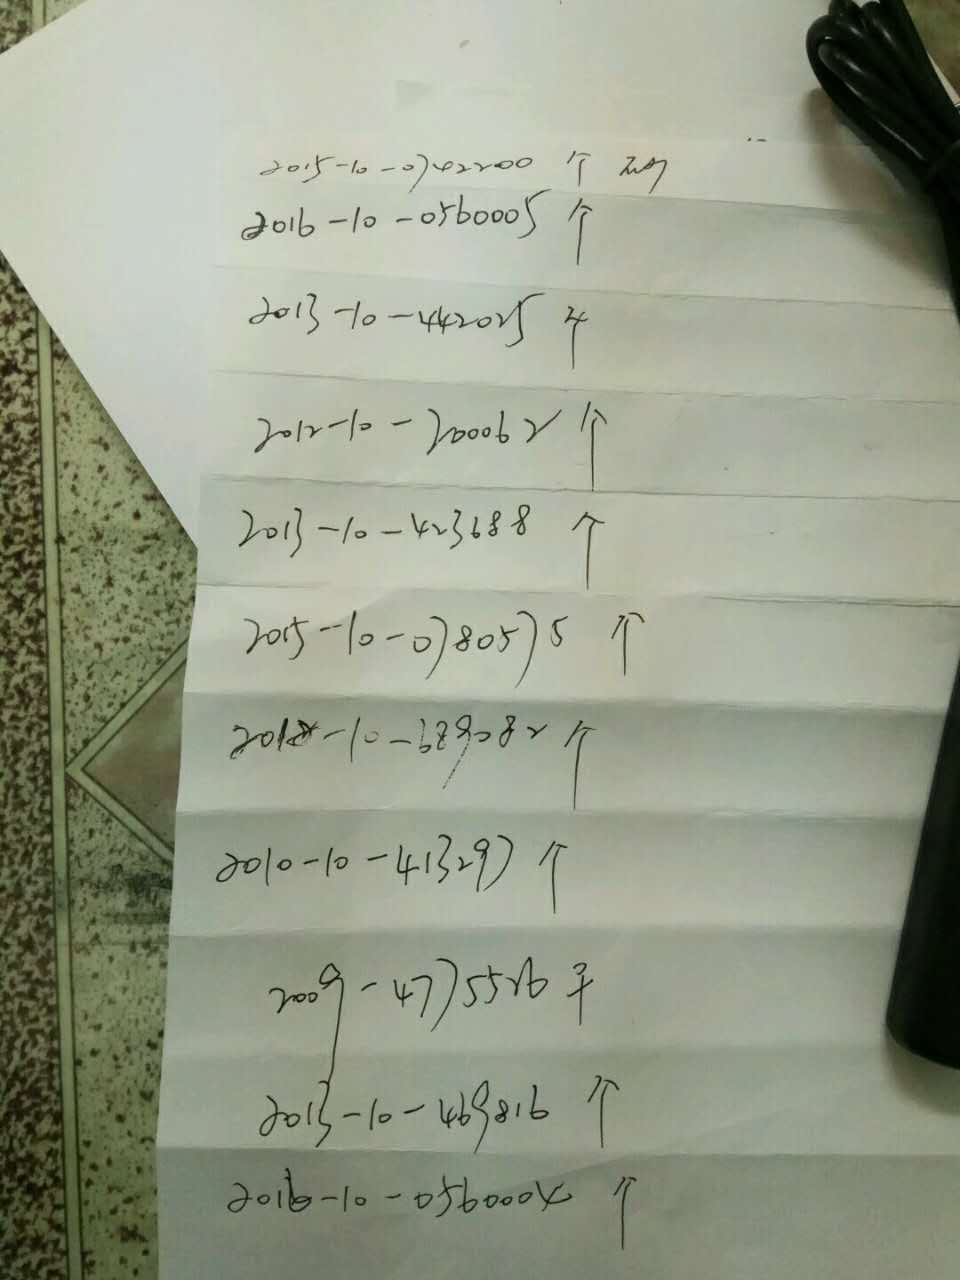 2015-10-0742200 个
2016-10-0560005 个
2013-10-442025 个
2012-10-200062 个
2013-10-423688 个
2015-10-0780575 个
10-689082 个
2010-10-413297 个
2009-4775526 子
2013-10-469816 个
2016-10-0560004 个